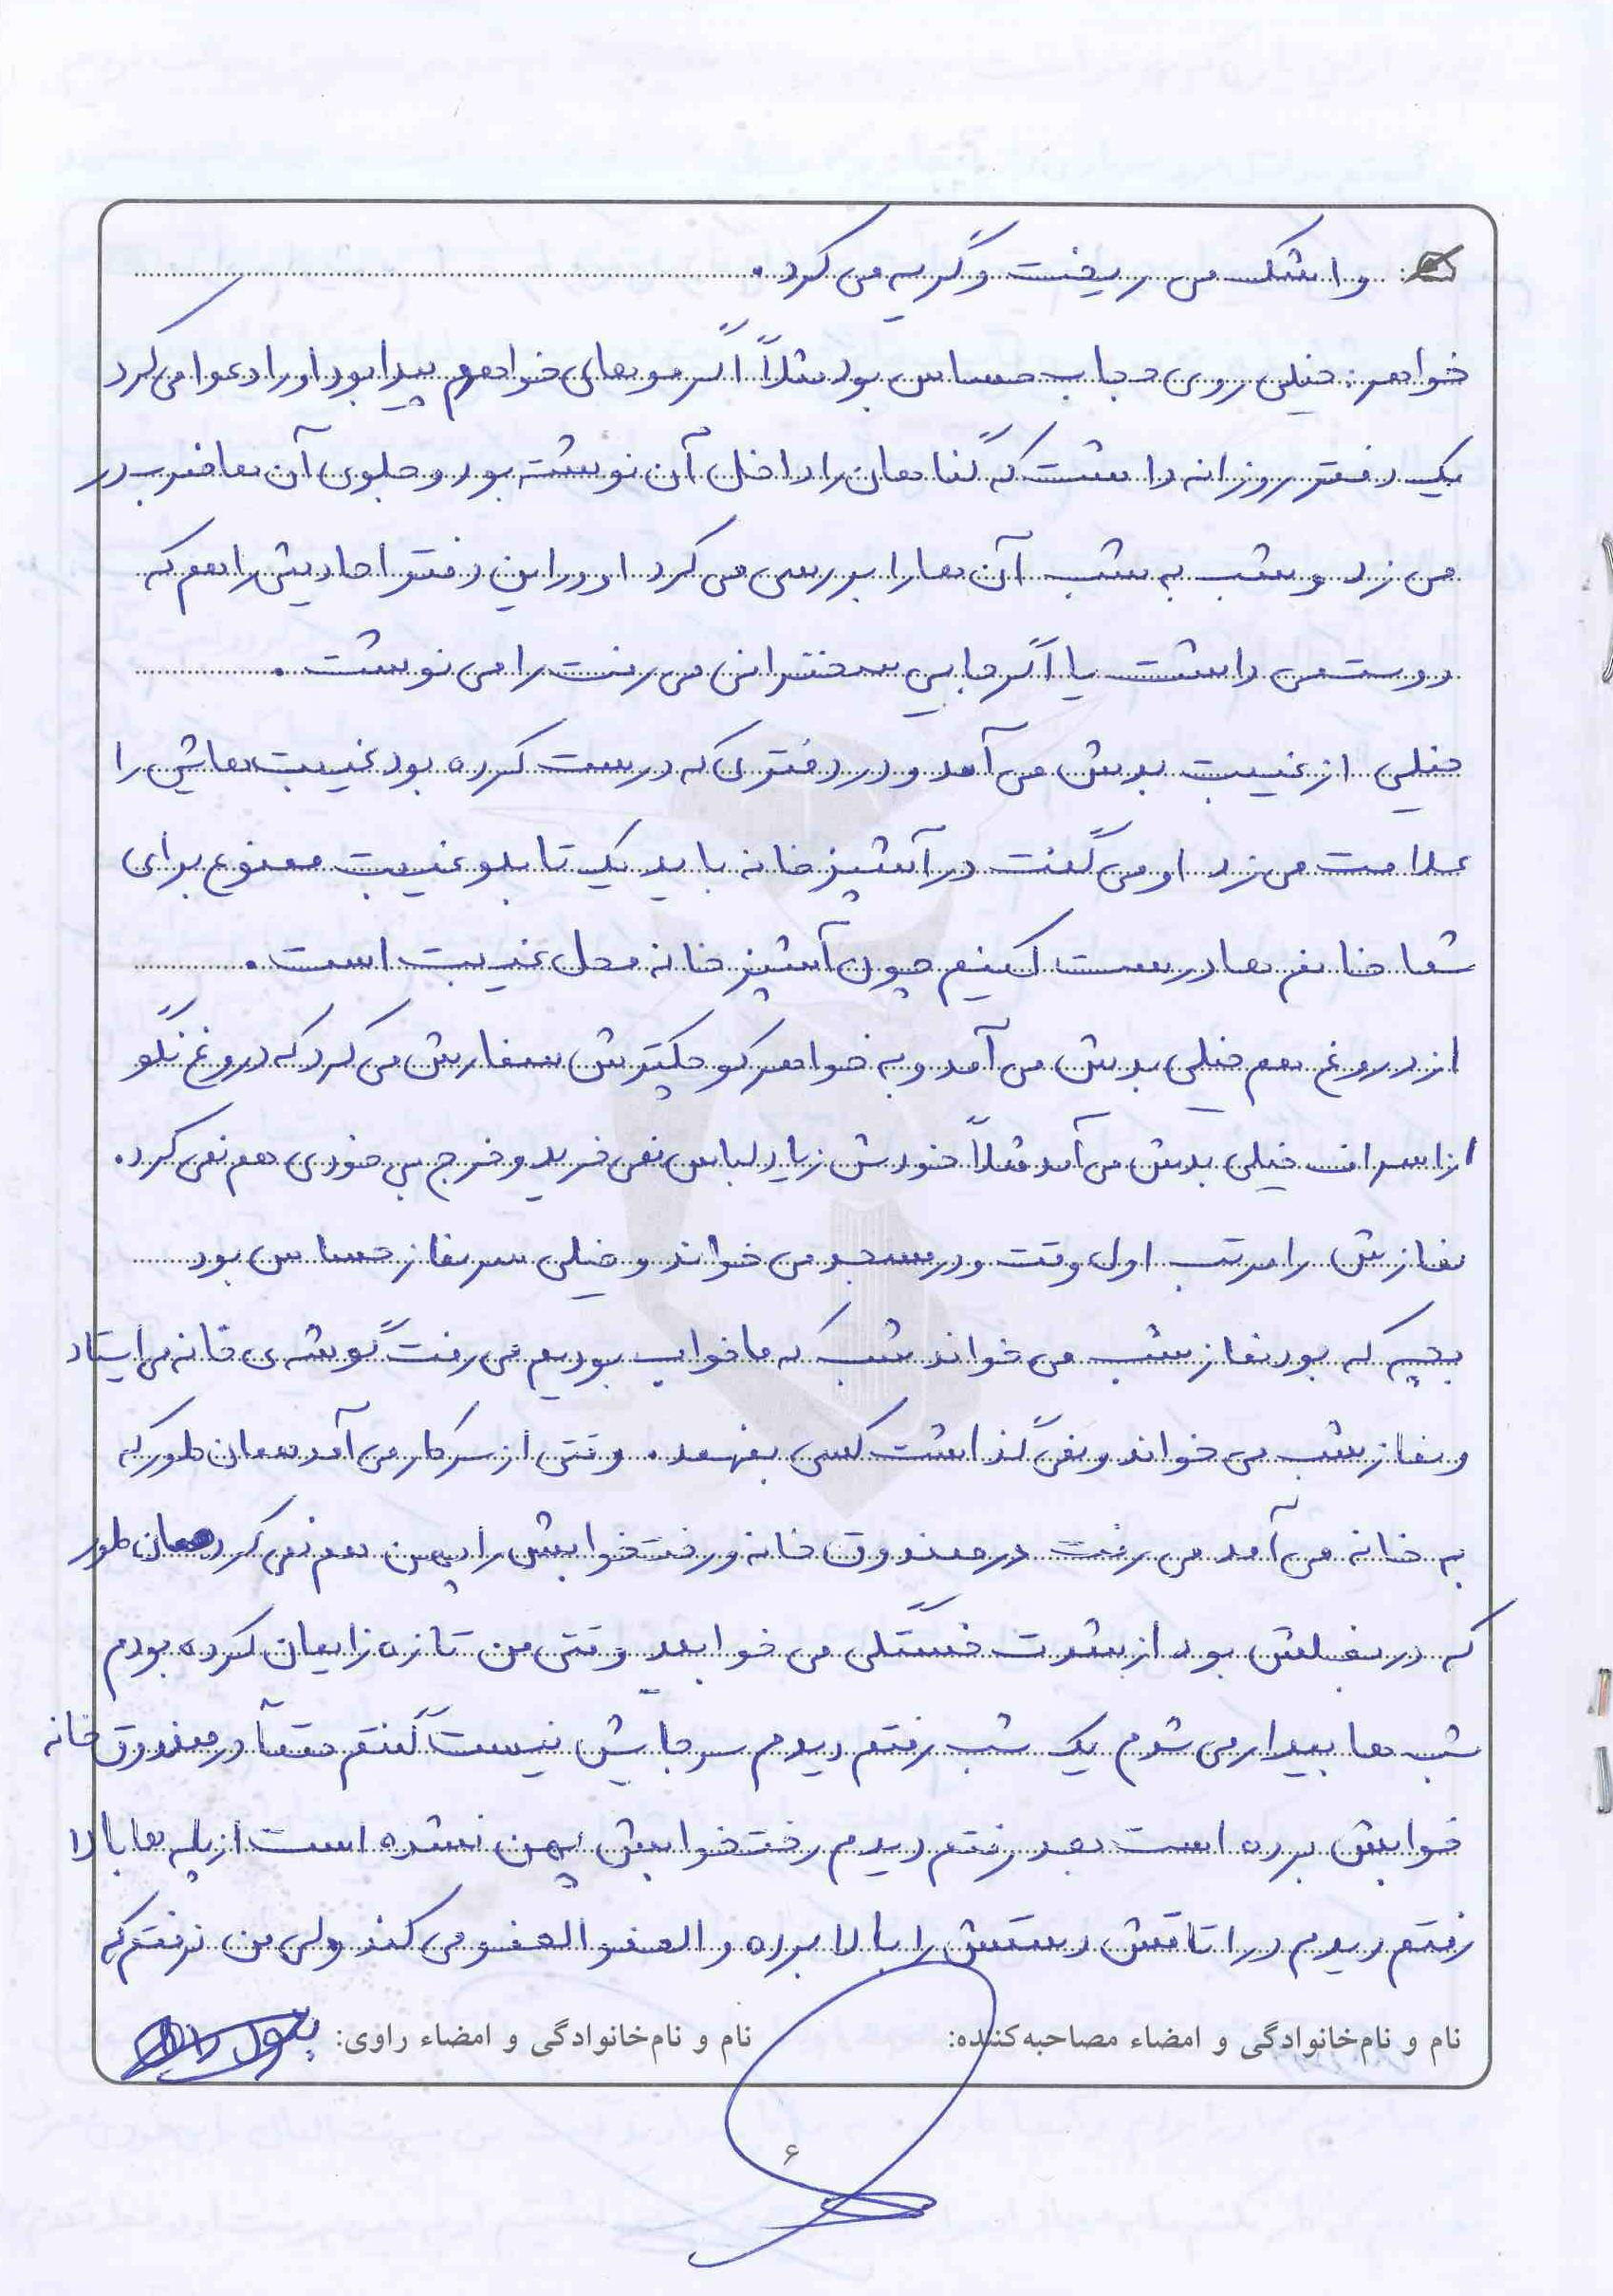 و اشک می ریخت و گریه می کرد.
خواهر: خیلی روی حجاب حساس بود مثلاً اگر موهای خواهرم پیدا بود او را دعوا می کرد
یک دفتر روزانه داشت که گناهان را داخل آن نوشته بود و جلوی آن ها ضرب در
می زد و شب به شب آن ها را بررسی می کرد او در این دفتر احادیثی را هم که
دوست می داشت یا اگر جایی سخنرانی می رفت را می نوشت.
خیلی از غیبت بدش می آمد و در دفتری که درست کرده بود غیبت هایش را
علامت می زد او می گفت در آشپزخانه باید یک تابلو غیبت ممنوع برای
شما خانم ها درست کنیم چون آشپزخانه محل غیبت است.
از دروغ هم خیلی بدش می آمد و به خواهر کوچکترش سفارش می کرد که دروغ نگو
از اسراف خیلی بدش می آمد مثلاً خودش زیاد لباس نمی خرید و خرج بی خودی هم نمی کرد.
نمازش را مرتب اول وقت و در مسجد می خواند و خیلی سر نماز حساس بود
بچه که بود نماز شب می خواند شب که ما خواب بودیم می رفت گوشه ی خانه می ایستاد
و نماز شب می خواند و نمی گذاشت کسی بفهمد. وقتی از سر کار می آمد همان طور که
به خانه می آمد می رفت در صندوق خانه و رخت خوابش را پهن هم نمی کرد همان طور
که در بغلش بود از شدت خستگی می خوابید وقتی من تازه زایمان کرده بودم
شب ها بیدار می شدم یک شب رفتم دیدم سر جایش نیست گفتم حتماً در صندوق خانه
خوابش برده است بعد رفتم دیدم رخت خوابش پهن نشده است از پله ها بالا
رفتم دیدم در اتاقش دستش را بالا برده و العفو العفو می کند ولی من نرفتم که
نام و نام‌خانوادگی و امضاء مصاحبه‌کننده: نام و نام‌خانوادگی و امضاء راوی:
۶